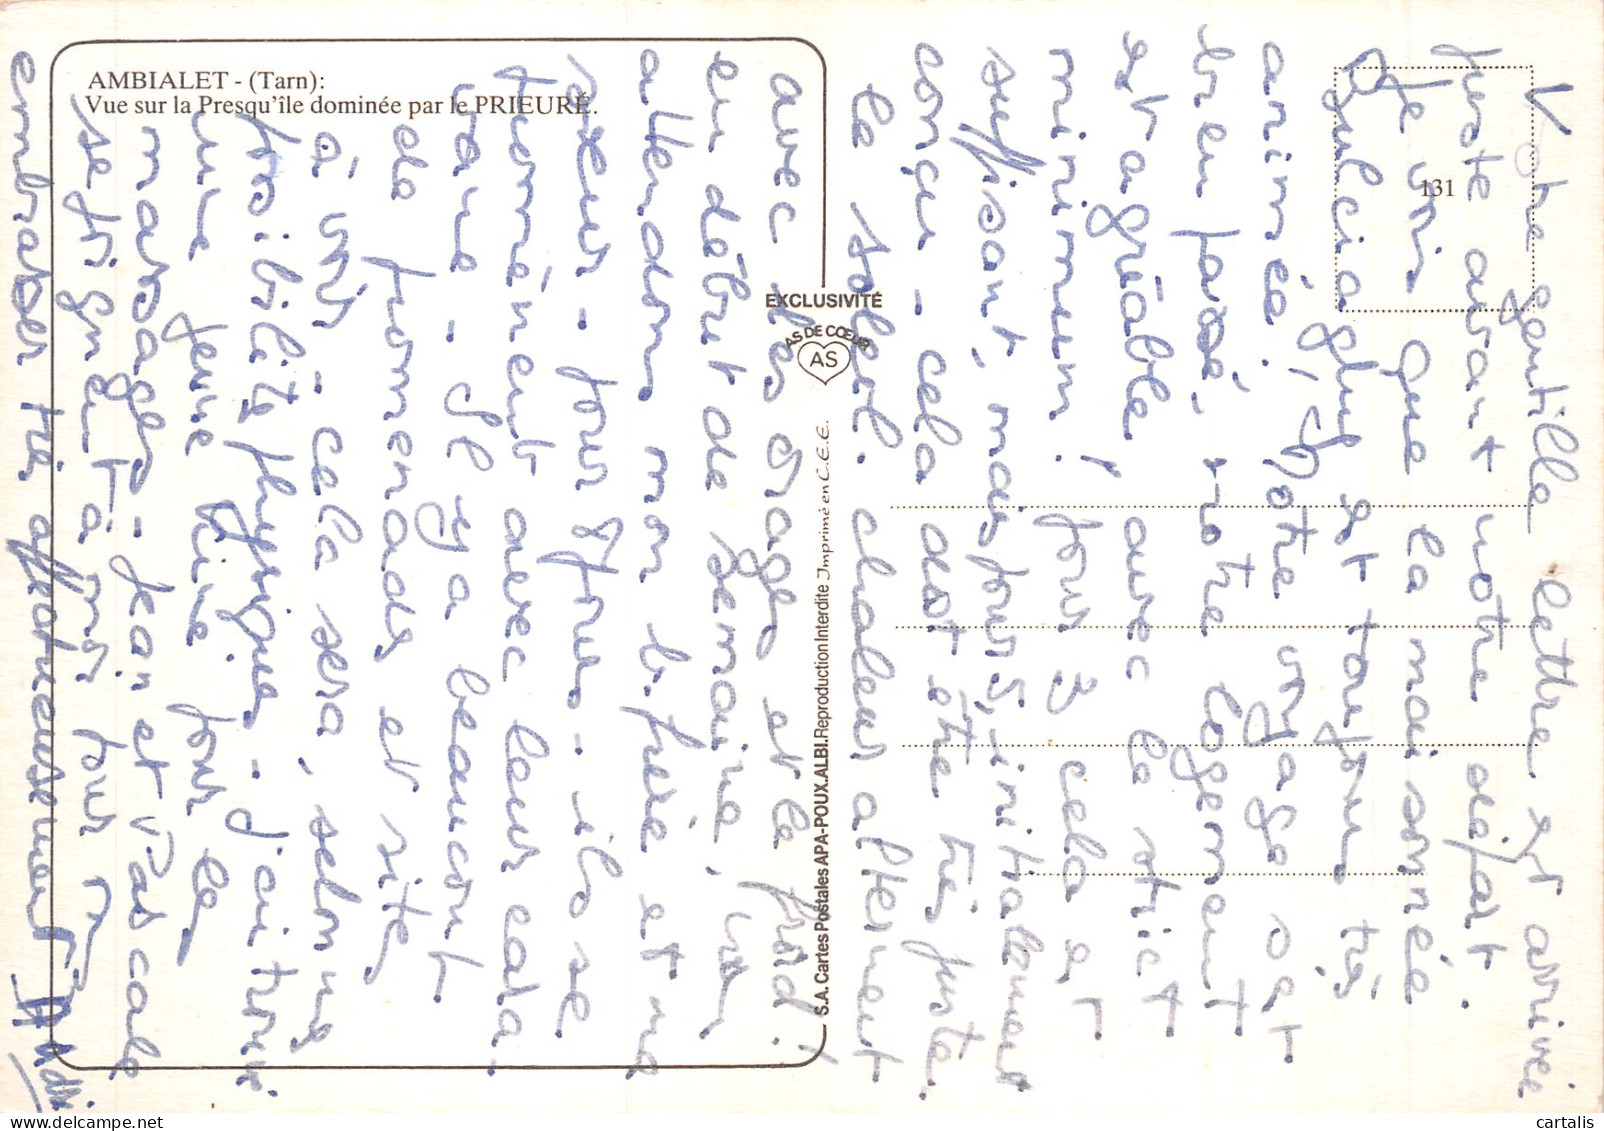 AMBIALET - (Tarn):
Vue sur la Presqu'île dominée par le PRIEURÉ.
131
EXCLUSIVITÉ
AS DE CŒUR
AS
S.A. Cartes Postales APA-POUX. ALBI. Reproduction Interdite Imprimé en C.E.E.
Votre gentille lettre est arrivée
juste avant notre départ.
Je vois que la maisonnée
Dulcia plus est toujours très
animée! Notre voyage s'est
bien passé, notre logement
est agréable, avec le strict
minimum; pour 3 cela est
suffisant, mais pour 5, initialement
conçu - cela doit être très juste.
Le soleil. chaleur alternent
avec les orages et le froid!
en début de semaine, nous
attendons mon b. frère et ma
sœur - pour 8 jours - ils se
promènent avec leur
- Il y a beaucoup
de promenades et sites
à voir - cela sera, selon nos
possibilités physiques - j'ai trouvé
une jeune kiné pour les
massages - Jean et Pascale
se joignent à moi pour vous
embrasser très affectueusement
cartalis